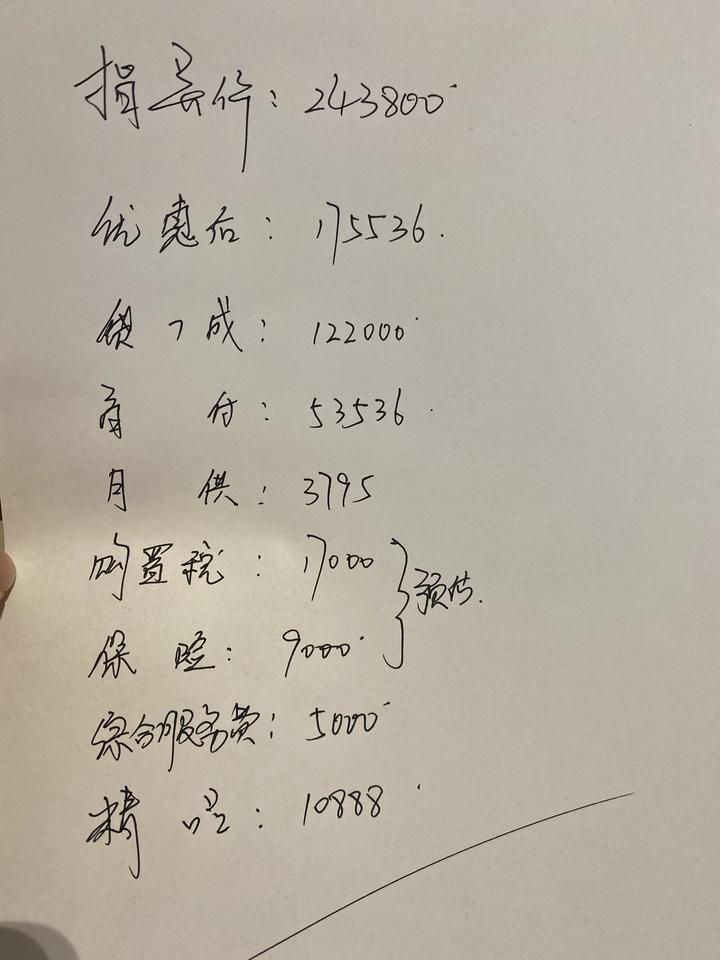 指导价：243800
优惠后：175536.
贷7成：122000
首付：53536
月供：3795
购置税：17000
保险：9000
预估.
综合服务费：5000
精品：10888